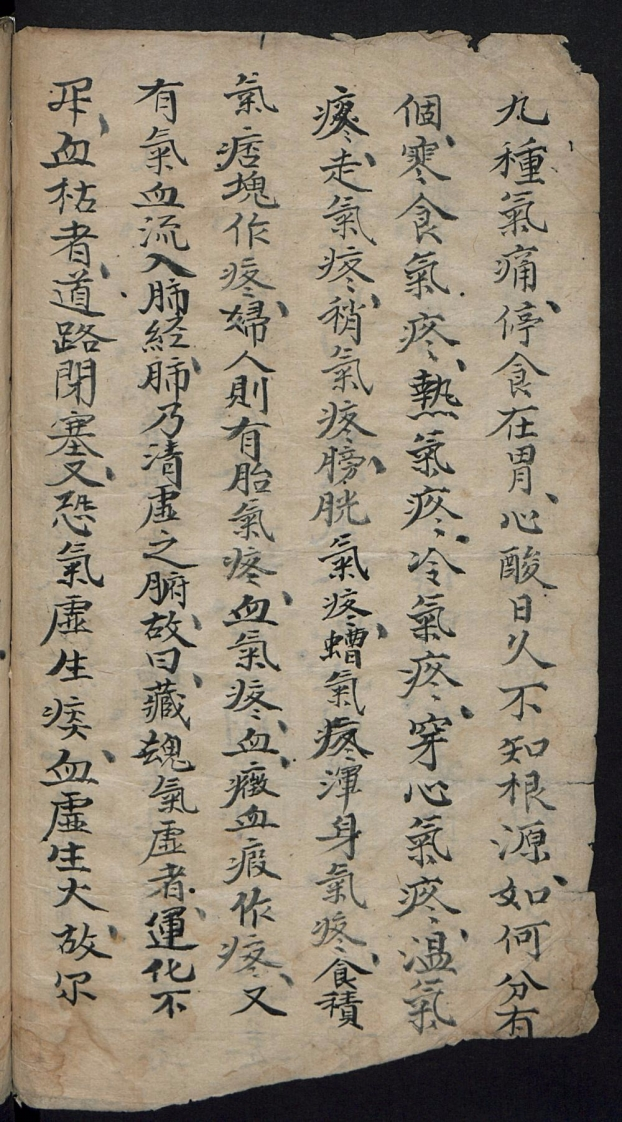 九種氣痛停食在胃心酸日久不知根源如何分有
個寒食氣疼熱氣疼冷氣疼穿心氣疼温氣
疼走氣疼稍氣疼膀胱氣疼蟠氣疼渾身氣疼食積
氣痞塊作疼婦人則有胎氣疼血氣疼血癥血瘕作疼又
有氣血流入肺經肺乃清虛之腑故曰藏魂氣虛者運化不
血枯者道路閉塞又恐氣虛生痰血虛生火故尔